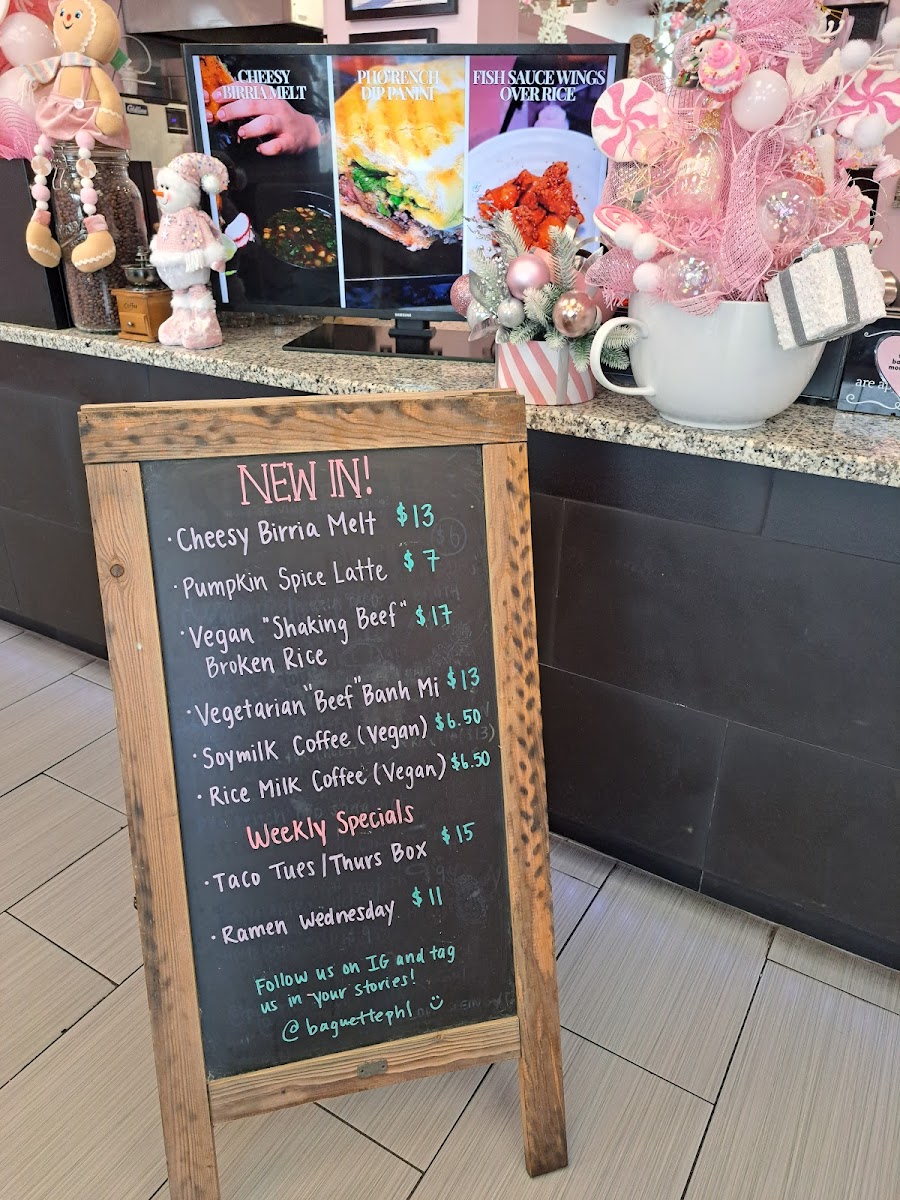 CHEESY
BIRRIA MELT
PHO'RENCH
DIP PANINI
FISH SAUCE WINGS
OVER RICE
SAMSUNG
are ap
NEW IN!
· Cheesy Birria Melt $13
· Pumpkin Spice Latte $7
· Vegan "Shaking Beef" $17
Broken Rice
· Vegetarian "Beef" Banh Mi $13
· Soymilk Coffee (Vegan) $6.50
· Rice Milk Coffee (Vegan) $6.50
Weekly Specials
· Taco Tues/Thurs Box $15
· Ramen Wednesday $11
Follow us on IG and tag
us in your stories!
@baguettephl